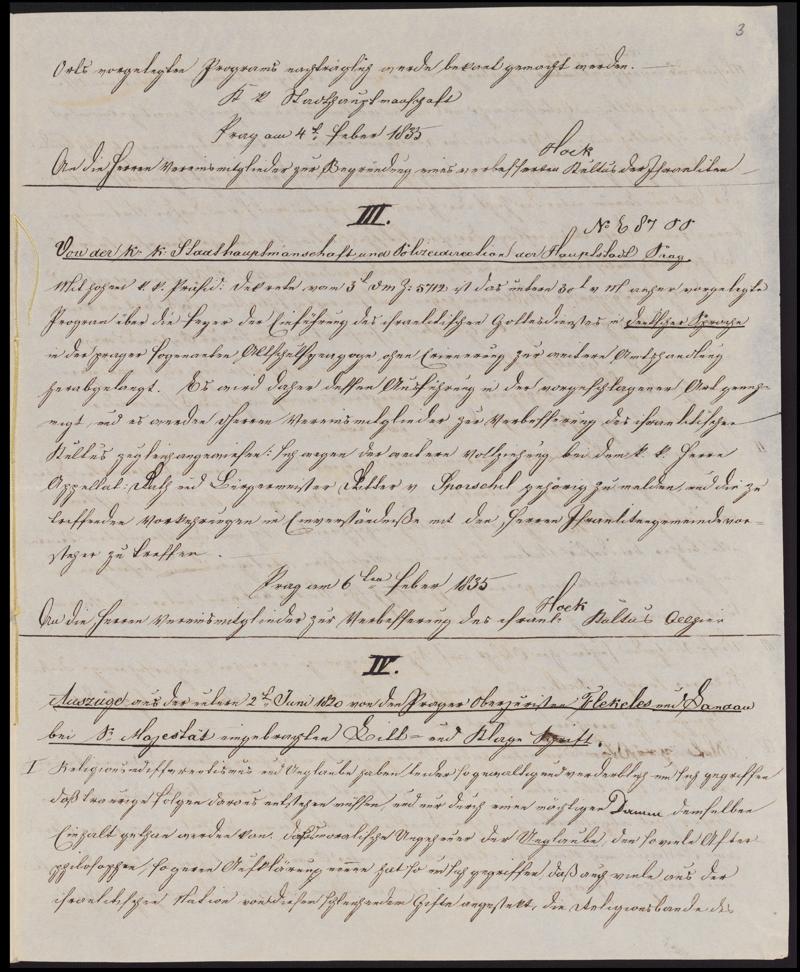 3
Orts vorgelegten Programs nachträglich werde bekant gemacht werden.
K k Stadthauptmanschaft
Prag am 4t. Feber 1835
Hock
An die Herren Vereinsmitglieder zur Begründung eines verbesserten Kultus der Israeliten
III.
No E 87
Von der k. k. Stadthauptmanschaft und Polizeidirection der Hauptstadt Prag
Mit hohem k. k. Präsid: Dekrete vom 3t d M Z: 5712 ist das unterm 30t v M anher vorgelegte
Program über die Feyer der Einführung des israelitischen Gottesdienstes in deutscher Sprache
in der prager sogenanten Altschulsynagoge ohne Erinnerung zur weitern Amtshandlung
herabgelangt. Es wird daher dessen Ausführung in der vorgeschlagenen Art geneh-
migt, und es werden Herren Vereinsmitglieder zur Verbesserung des israelitischen
Kultus zugleich angewiesen: sich wegen der weitern Vollziehung bei dem k. k. Herrn
Appellat: Rath und Bürgermeister Ritter v Sporschil gehörig zu melden, und die zu
treffenden Vorkehrungen im Einverständniße mit den Herren Israelitengemeindevor-
steher zu treffen.
Prag am 6ten Feber 1835
Hock
An die Herren Vereinsmitglieder zur Verbesserung des israel. Kultus
IV.
Auszüge aus der unterm 2t. Juni 1820 von den Prager Oberjuristen Flekeles und Landau
bei Sr Majestät eingebrachten Bitt- und Klage Schrift.
I Religionsindifferentismus und Unglaube haben leider so gewaltig und verderblich um sich gegriffen
daß traurige Folgen daraus entstehen müssen, und nur durch einen mächtigen Damm demselben
Einhalt gethan werden kan. Das moralische Ungeheuer der Unglaube, den so viele After
philosophen so gerne Aufklärung nennen hat so um sich gegriffen, daß auch viele aus der
israelitischen Nation von diesem schleichendem Gifte angestekt, die Religionsbande des